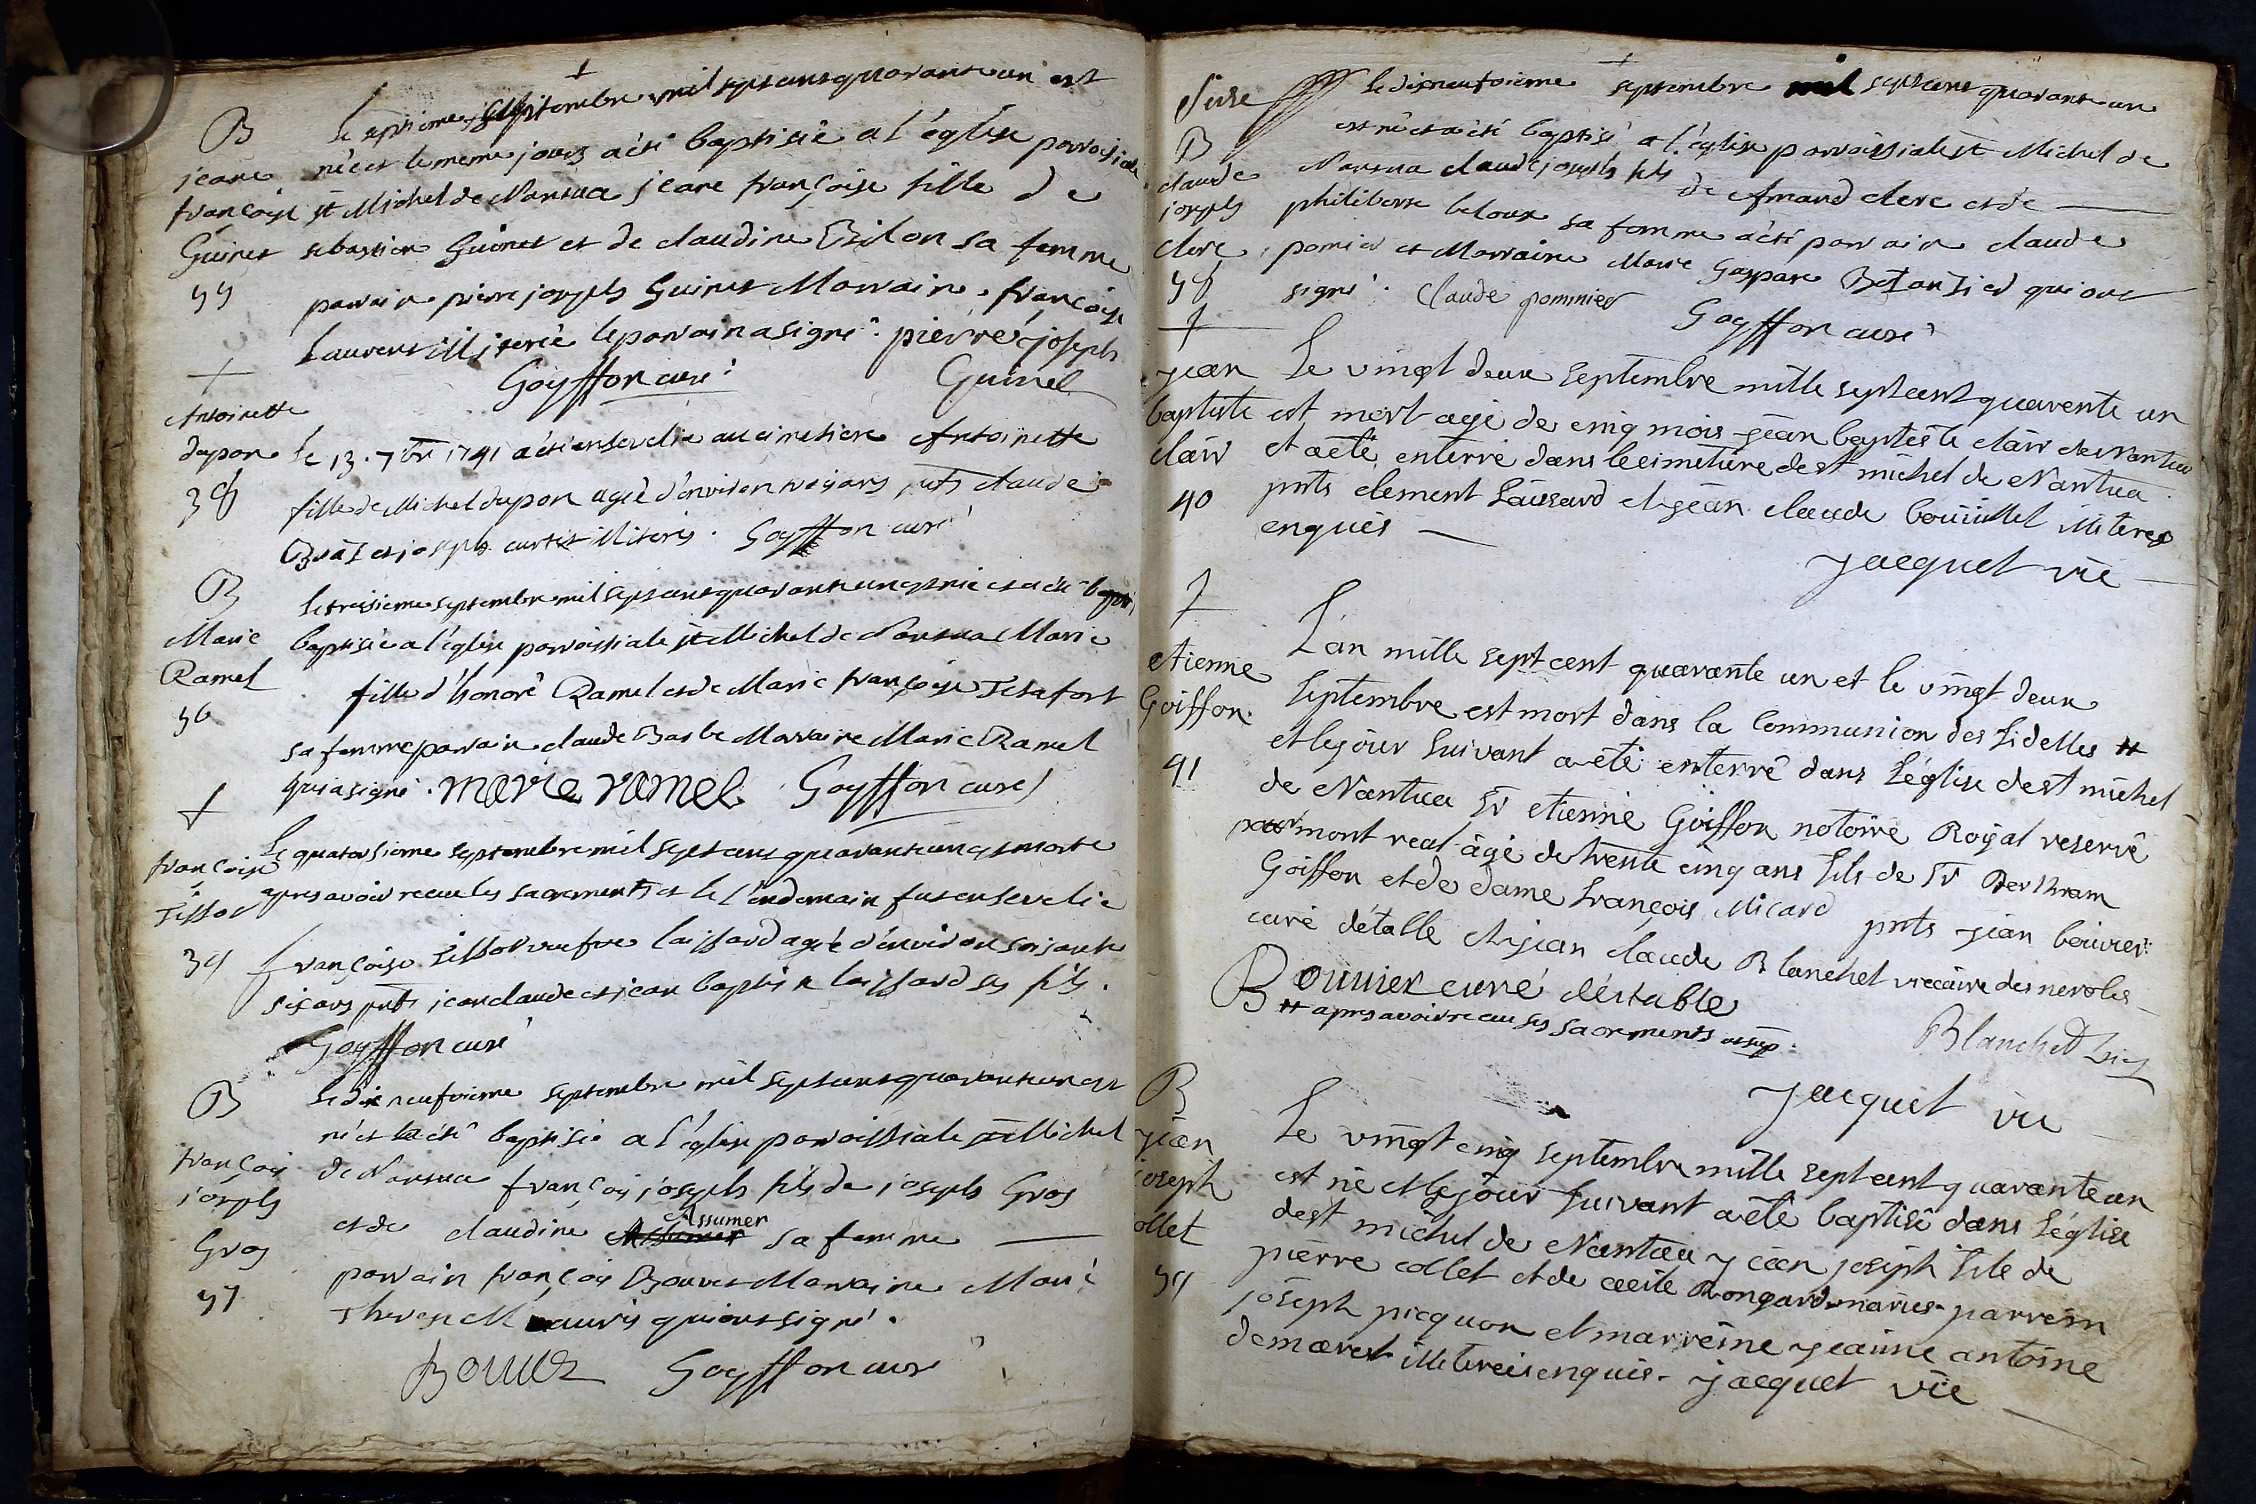 B
jeane
françoise
Guinet
55
Le septieme septembre mil septcentquarante un est
néeet lememe jours aété baptisée a l'église paroissiale
st Michel de Nantua jeane françoise fille de
sebastien Guinet et de claudine Bilon sa femme
parrain pierre joseph Guinet Marraine françoise
Laurent illiterée leparrain asigné. pierre joseph
Goyffon curé Guinet
+
Antoinette
dupon
38
Le 13. 7bre 1741 aétéensevelie aucimetiere Antoinette
fille de Michel dupon agée d'environ trois ans pnts claude
et joseph curtet illiterés. Goyffon curé
B
Marie
Ramel
56
Le treisieme septembre mil septcentquarante un est née et a été
baptisée a l'église paroissiale st Michel de Nantua Marie
fille d'honoré Ramel et de Marie françoise Tetafort
sa femme parrain claude Barbe Marraine Marie Ramel
qui a signé. marie ramel Goyffon curé
+
françoise
Tissot
39
Le quatorsieme septembre mil septcent quarante un est morte
apres avoir receu les sacrements et le lendemain fut ensevelie
françoise Tissot veufve laissard agée d'environ soisante
six ans pnts jean claude et jean baptiste laissard ses fils.
Goyffon curé
B
françois
joseph
Gros
57
Le dix neufvieme septembre mil septcentquarante un est
né et a été baptisé a l'église paroissiale st Michel
de Nantua françois joseph fils de joseph Gros
Assumer
et de claudine sa femme
parrain françois Bouvet Marraine Marie
Therese Mauris qui ont signé.
Bouvet Goyffon curé
B
claude
joseph
clerc
58
Le disneufvieme septembre mil septcent quarante un
est né et a été baptisé a l'église paroissiale st Michel de
Nantua claude joseph fils de Amand clerc et de
philiberte beloux sa femme a été parrain claude
pomier et Marraine Marie Gaspare qui ont
signé. Claude pommier
Goyffon curé
+
jean
baptiste
clair
40
Le vingt deux septembre mille septcent quarente un
est mort agé de cinq mois jean baptiste clair de Nantua
et aété enterré dans le cimetiere de st michel de Nantua
pnts clement Laissard et jean claude bouillet illiteres
enquis
jacquet vic
+
etienne
Goiffon
41
L'an mille sept cent quarante un et le vingt deux
septembre est mort dans la Communion des fidelles #
et le jour suivant a été enterré dans l'église de st michel
de Nantua Sr etienne Goiffon notaire Royal reservé
pour mont real âgé de trente cinq ans fils de Sr Berthram
Goiffon et de dame françois Micard pnts jean bouvier
curé détable et jean claude Blanchet viccaire des nerolles
Bouvier curé d'éstable
# apres avoir receu ses sacrements
Blanchet vic
jacquet vic
B
jean
joseph
collet
59
Le vingt cinq septembre mille septcent quarante un
est né et le jour suivant a été baptisé dans l'église
de st michel de Nantua jean joseph fils de
pierre collet et de cecile Rongard mariés parrein
joseph picquon et marreine jeanne antoine
demaret illiterés enquis. jacquet vic